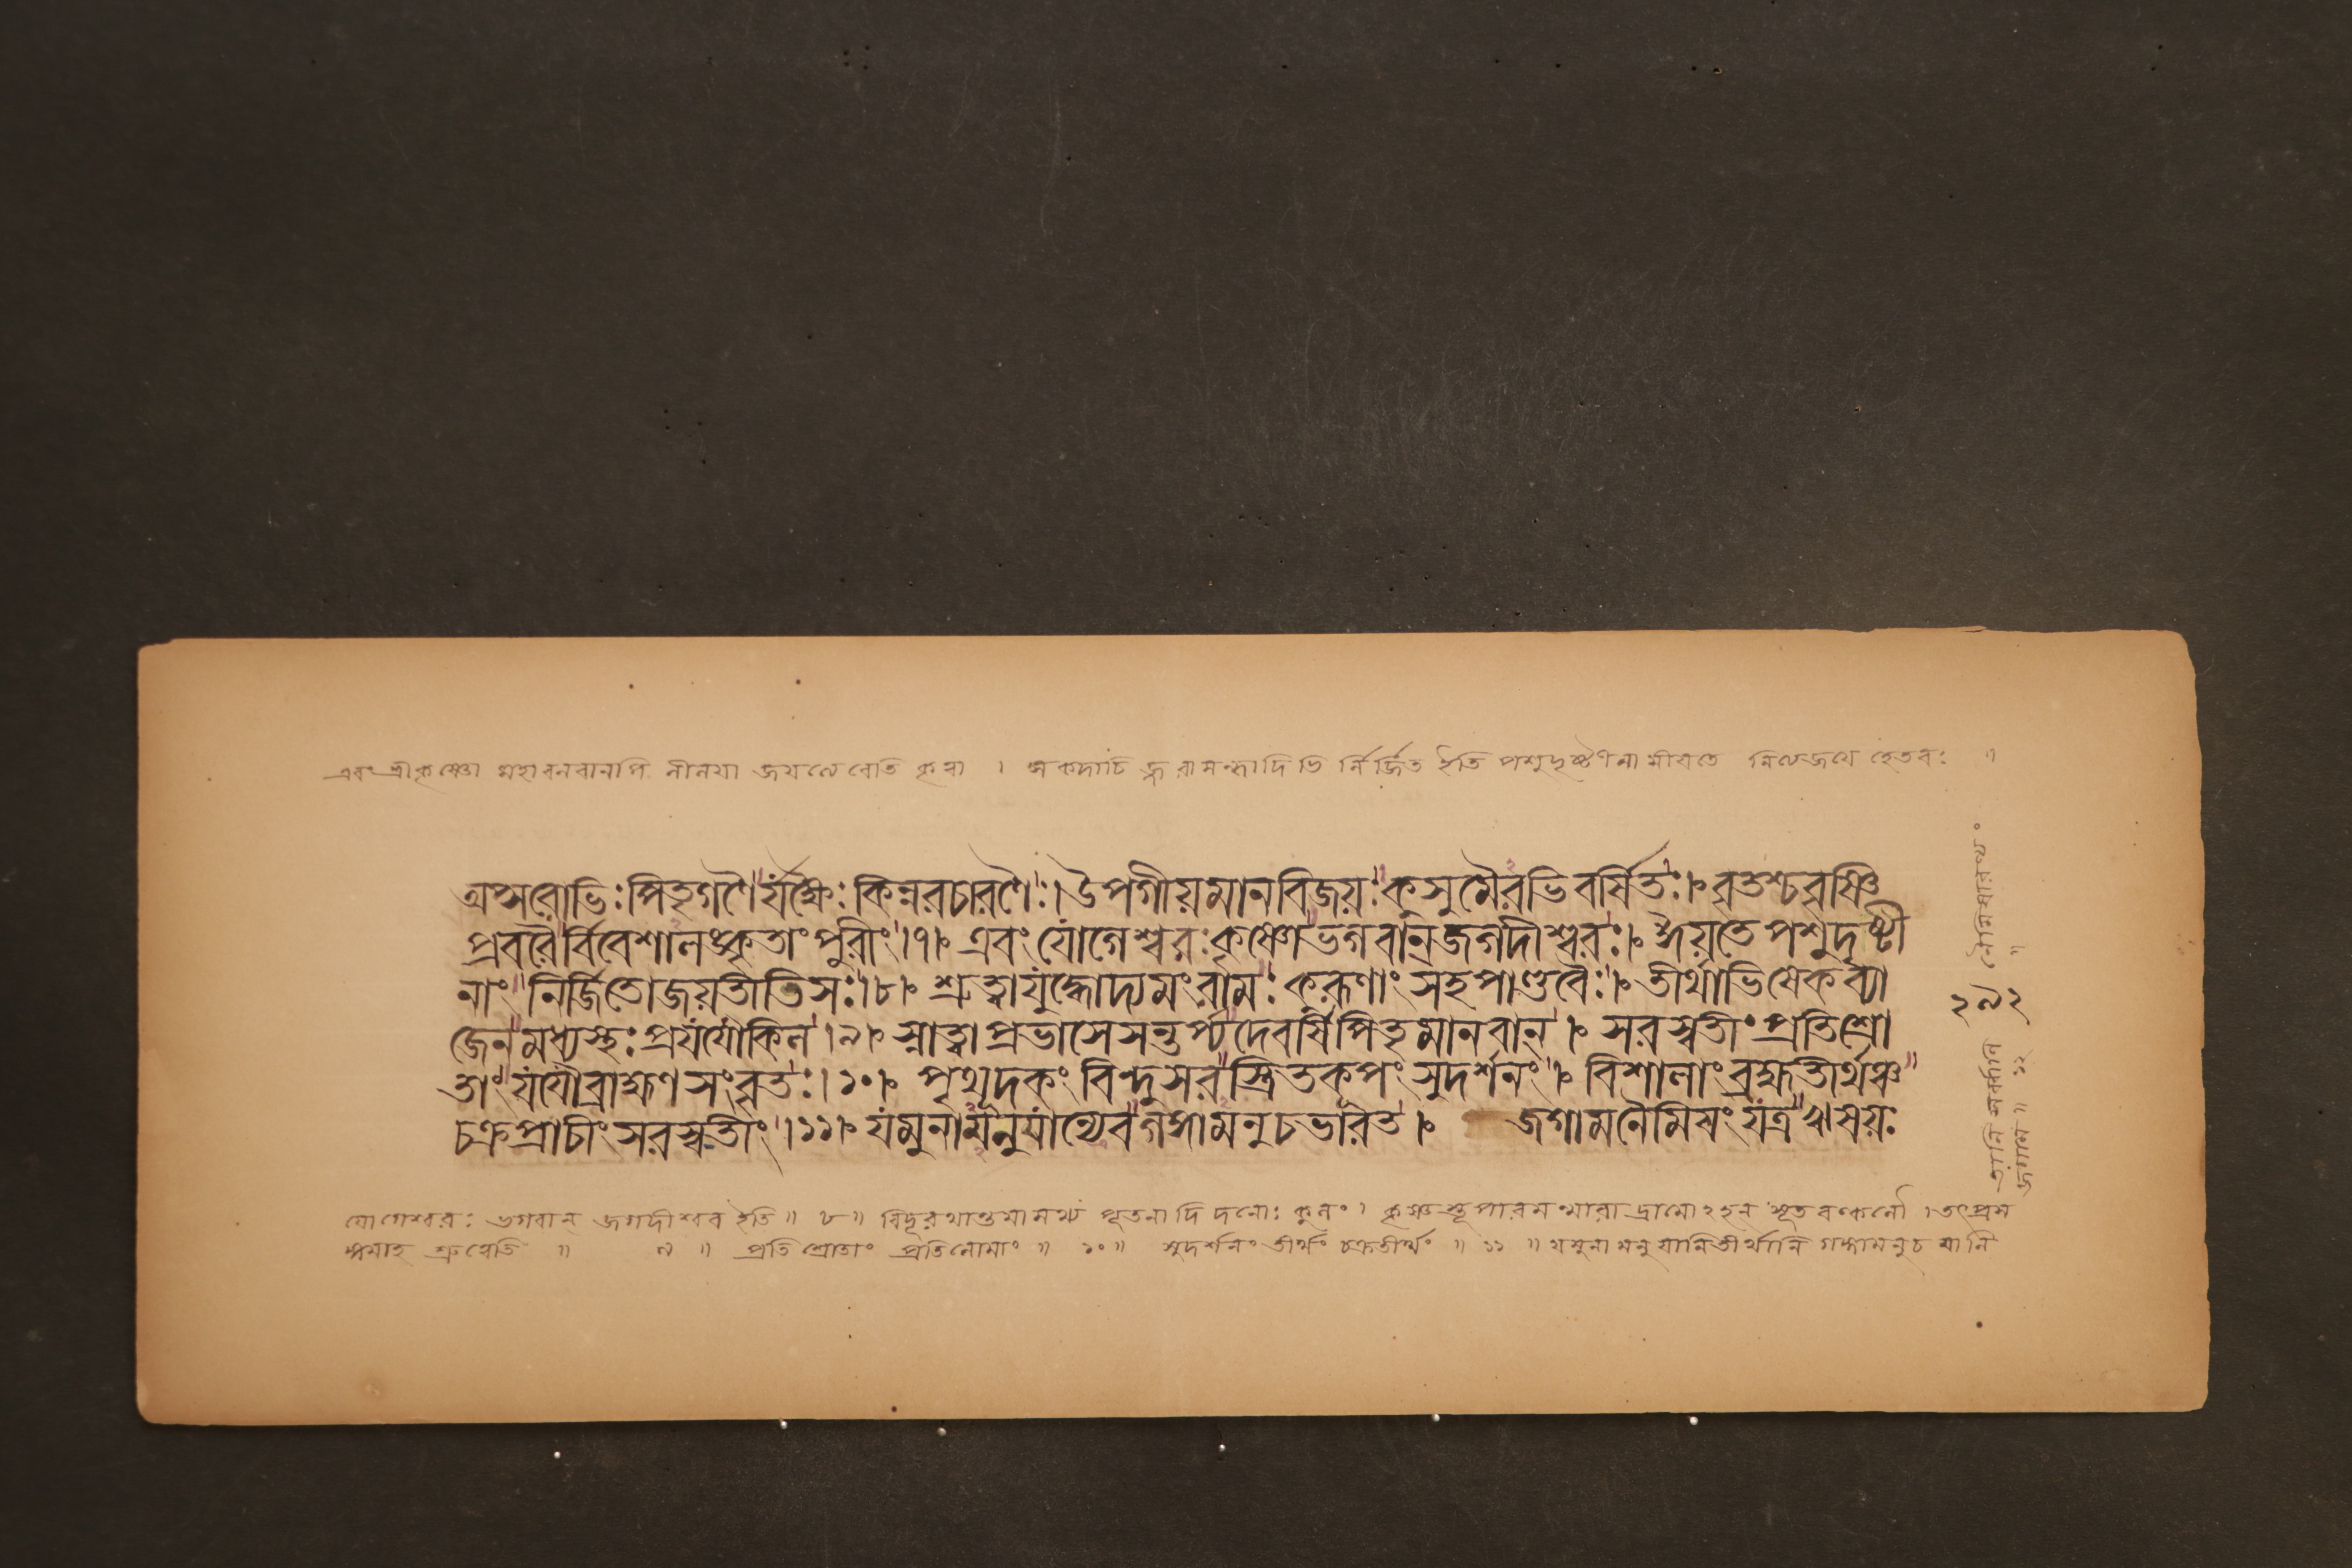 এবং শ্রীকৃষ্ণো মহাবলবানপি লীলয়া জয়ত্যেবেতি কৃত্বা । স কদাচিজ্জরাসন্ধাদিভি র্নির্জিত ইতি পশুদৃষ্টীনামীয়তে নিত্যজয়ে হেতবঃ ॥
অপ্সরোভিঃ পিতৃগণৈ র্যক্ষৈঃ কিন্নরচারণৈঃ । উপগীয়মানবিজয়ঃ কুসুমৈরভিবর্ষিতঃ । বৃতশ্চ বৃষ্ণি
প্রবরৈর্বিবেশালঙ্কৃতাং পুরীং । ৭ । এবং যোগেশ্বরঃ কৃষ্ণো ভগবান্ জগদীশ্বরঃ । ঈয়তে পশুদৃষ্টী
নাং নির্জিতো জয়তীতি সঃ । ৮ । শ্রুত্বা যুদ্ধোদ্যমং রামঃ কুরূণাং সহ পাণ্ডবৈঃ । তীর্থাভিষেকব্যা
জেন মধ্যস্থঃ প্রযযৌ কিল । ৯ । স্নাত্বা প্রভাসে সন্তর্প্য দেবর্ষিপিতৃমানবান্ । সরস্বতীং প্রতিশ্রো
তাং যযৌ ব্রাহ্মণসংবৃতঃ । ১০ । পৃথূদকং বিন্দুসর স্ত্রিতকূপং সুদর্শনং । বিশালাং ব্রহ্মতীর্থঞ্চ
চক্রপ্রাচীং সরস্বতীং । ১১ । যমুনামনু যান্যেব গঙ্গামনু চ ভারত । জগাম নৈমিষং যত্র ঋষয়ঃ
যোগেশ্বরঃ ভগবান্ জগদীশ্বর ইতি ॥ ৮ ॥ বিদূরথান্তমানয্য পূতনাদি কুলং । কৃষ্ণ রামোঽহন্ সূত বল্বলৌ । তৎপ্রস
ঙ্গমাহ শ্রুত্বেতি ॥ ৯ ॥ প্রতিশ্রোতাং প্রতিলোমাং ॥ ১০ ॥ সুদর্শনং তীর্থং চক্রতীর্থং ॥ ১১ ॥ যমুনামনু যানি তীর্থানি গঙ্গামনু চ যানি
তানি সর্ব্বাণি নৈমিষারণ্যং
জগাম ॥ ১২ ॥
২৯২